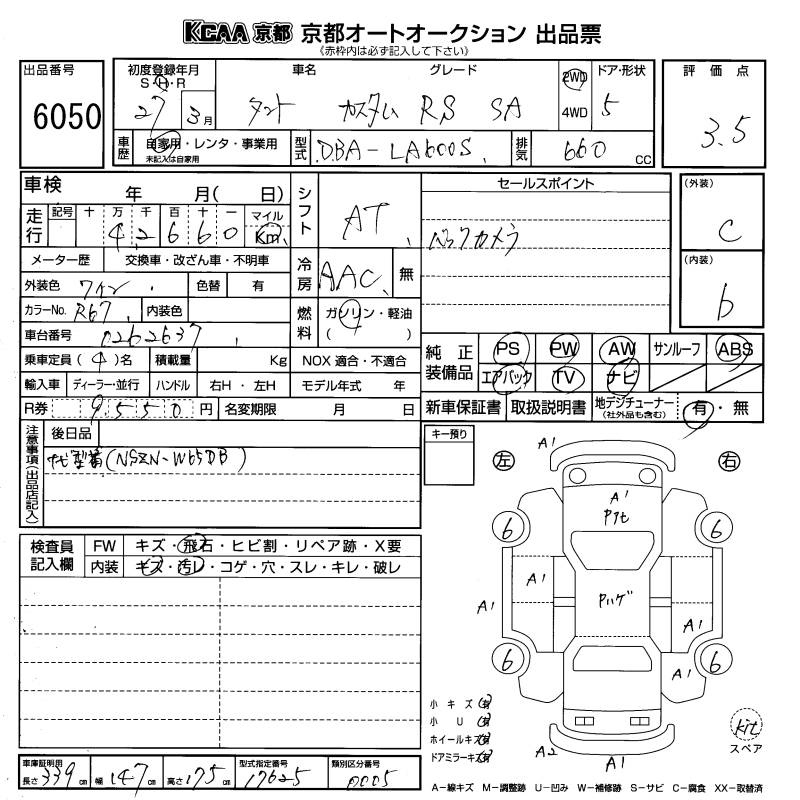 KCAA 京都 京都オートオークション 出品票
《赤枠内は必ず記入して下さい》
出品番号
6050
初度登録年月
S・H・R
27 3月
車名
タント
グレード
カスタム RS SA
2WD
4WD
ドア・形状
5
評価点
3.5
車歴
自家用・レンタ・事業用
未記入は自家用
型式
DBA-LA600S
排気
660 CC
車検 年 月( 日)
走行
記号 十 万 千 百 十 一 マイル
4 2 6 6 0 Km
メーター歴 交換車・改ざん車・不明車
外装色 ワイン 色替 有
カラーNo. R67 内装色
車台番号 0262637
乗車定員 (4)名 積載量 Kg
輸入車 ディーラー・並行 ハンドル 右H・左H
R券 9550円 名変期限 月 日
シフト AT
冷房 AAC 無
燃料 ガソリン・軽油
( )
NOX 適合・不適合
モデル年式 年
セールスポイント
バックカメラ
(外装)
C
(内装)
b
純正装備品
PS PW AW サンルーフ ABS
エアバック TV ナビ
新車保証書 取扱説明書 地デジチューナー
(社外品も含む)
有・無
注意事項(出品店記入)
後日品
ナビ型番(NSZN-W65DB)
検査員記入欄
FW キズ・飛石・ヒビ割・リペア跡・X要
内装 キズ・汚レ・コゲ・穴・スレ・キレ・破レ
キー預り
左
右
A1
A1
6 6
A1
A1
Pハゲ
A1
6 6
A1
A2
A1
小キズ(有)
小U(有)
ホイールキズ(有)
ドアミラーキズ(有)
kit
スペア
車庫証明用
長さ 339cm 幅 147cm 高さ 175cm
型式指定番号
17625
類別区分番号
0005
A-線キズ M-調整跡 U-凹み W-補修跡 S-サビ C-腐食 XX-取替済